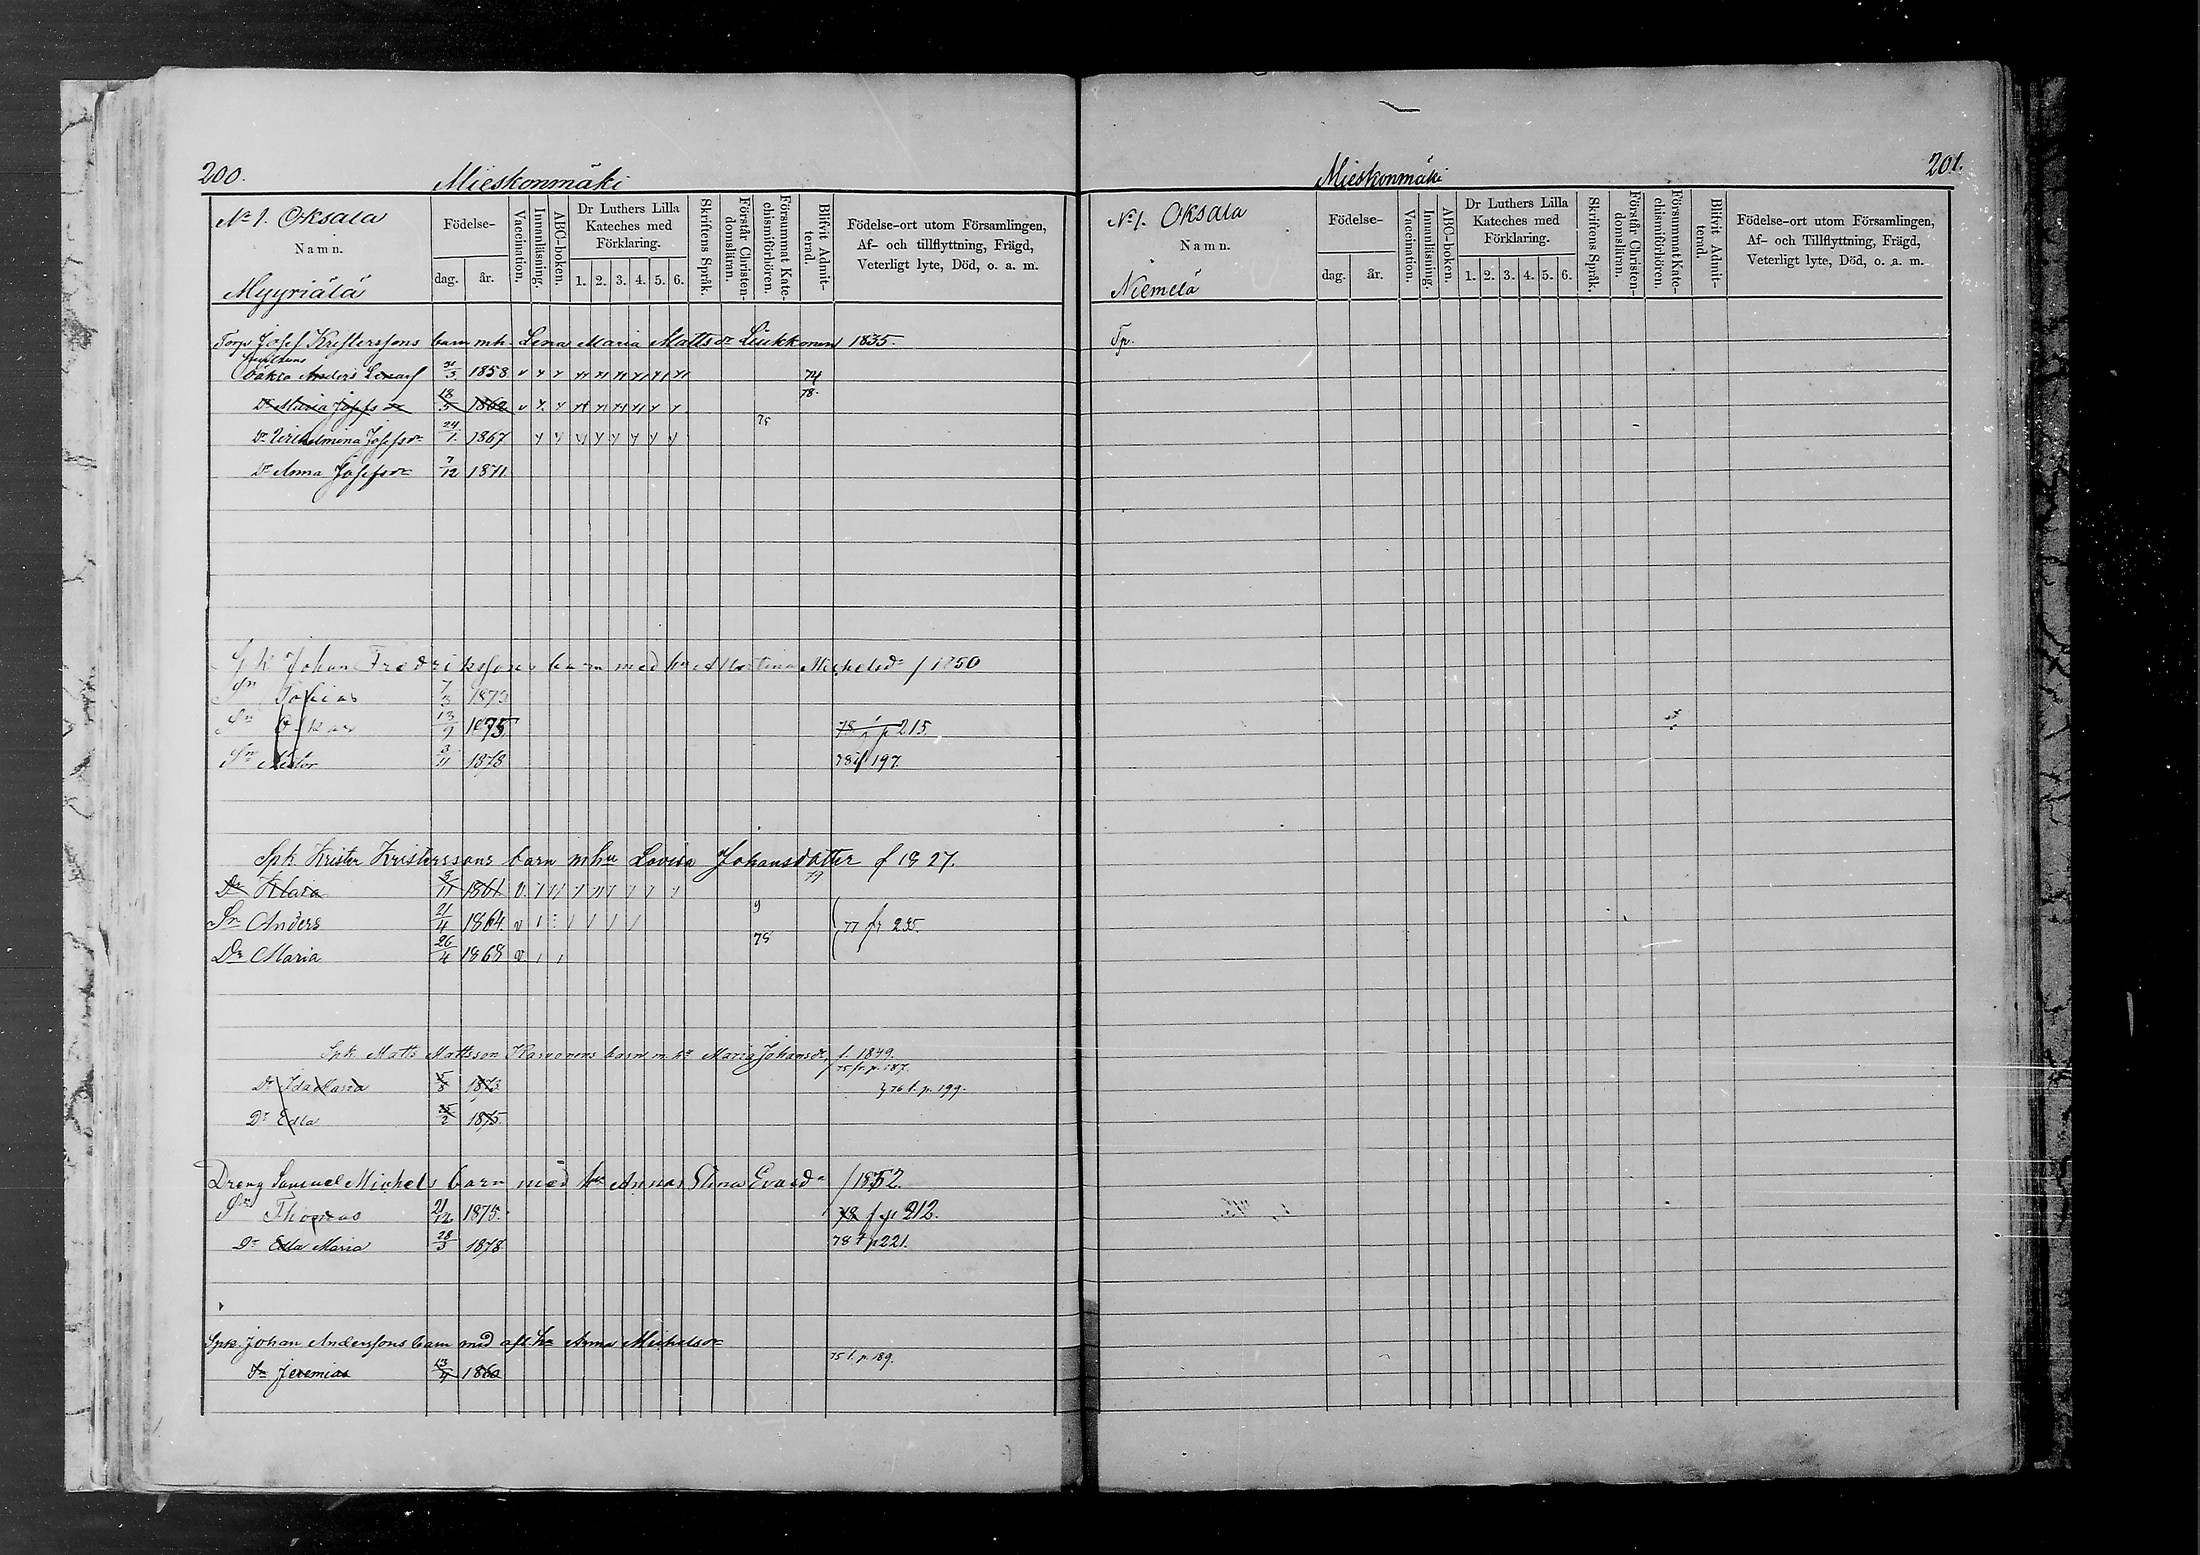 200.
Mieskonmäki
No 1. Oksala
Namn.
Myyriälä
Födelse-
dag. år.
Vaccination.
Innanläsning.
ABC-boken.
Dr Luthers Lilla
Kateches med
Förklaring.
1. 2. 3. 4. 5. 6.
Skriftens Språk.
Förstår Christen-
domsläran.
Försummat Kate-
chismiförhören.
Blifvit Admit-
terad.
Födelse-ort utom Församlingen,
Af- och tillflyttning, Frägd,
Veterligt lyte, Död, o. a. m.
Torp Josef Kristerssons barn mh. Lena Maria Mattsdr Liukkonen 1835.
Anders 31/3 1858 v 74
Dr Maria Josefsdr 18/5 1862 v 78.
Dr Vilhelmina Josefsdr 24/1. 1867 75
Dr Anna Josefsdr 7/12 1871.
Spk Johan Fredrikssons barn med hu Michelsdr f 1850
Sn Tobias 7/3 1873
Sn Oskar 13/9 1875 78 f p 215.
Sn Nestor 3/11 1878 78 197.
Spk. Krister Kristerssons barn mhu Lovisa Johansdotter f 1827.
Dr Klara 8/11 1861 v. 79
Sn Anders 21/4 1864. v 9 77 fr 235.
Dr Maria 26/4 1868 v 75
Spk. Matts Mattsson Karvonens barn m. hu Maria Johansdr f. 1849.
75 fr. p. 187.
Dr Ida Maria 5/8 1873 } 76 t. p. 199.
Dr Edla 25/2 1875.
Dreng Samuel Michels barn med hu Anna Stina Evasdr f 1852.
Sn Thomas 21/12 1875. 78 f p 212.
Dr Edla Maria 28/3 1878 78 f p 221.
Spk. Johan Anderssons barn med afl. hu Anna Michelsdr
75 t. p. 189.
Sn Jeremias 13/4 1860
201.
Mieskonmäki
No 1. Oksala
Namn.
Niemelä
Födelse-
dag. år.
Vaccination.
Innanläsning.
ABC-boken.
Dr Luthers Lilla
Kateches med
Förklaring.
1. 2. 3. 4. 5. 6.
Skriftens Språk.
Förstår Christen-
domsläran.
Försummat Kate-
chismiförhören.
Blifvit Admit-
terad.
Födelse-ort utom Församlingen,
Af- och Tillflyttning, Frägd,
Veterligt lyte, Död, o. a. m.
Tp.